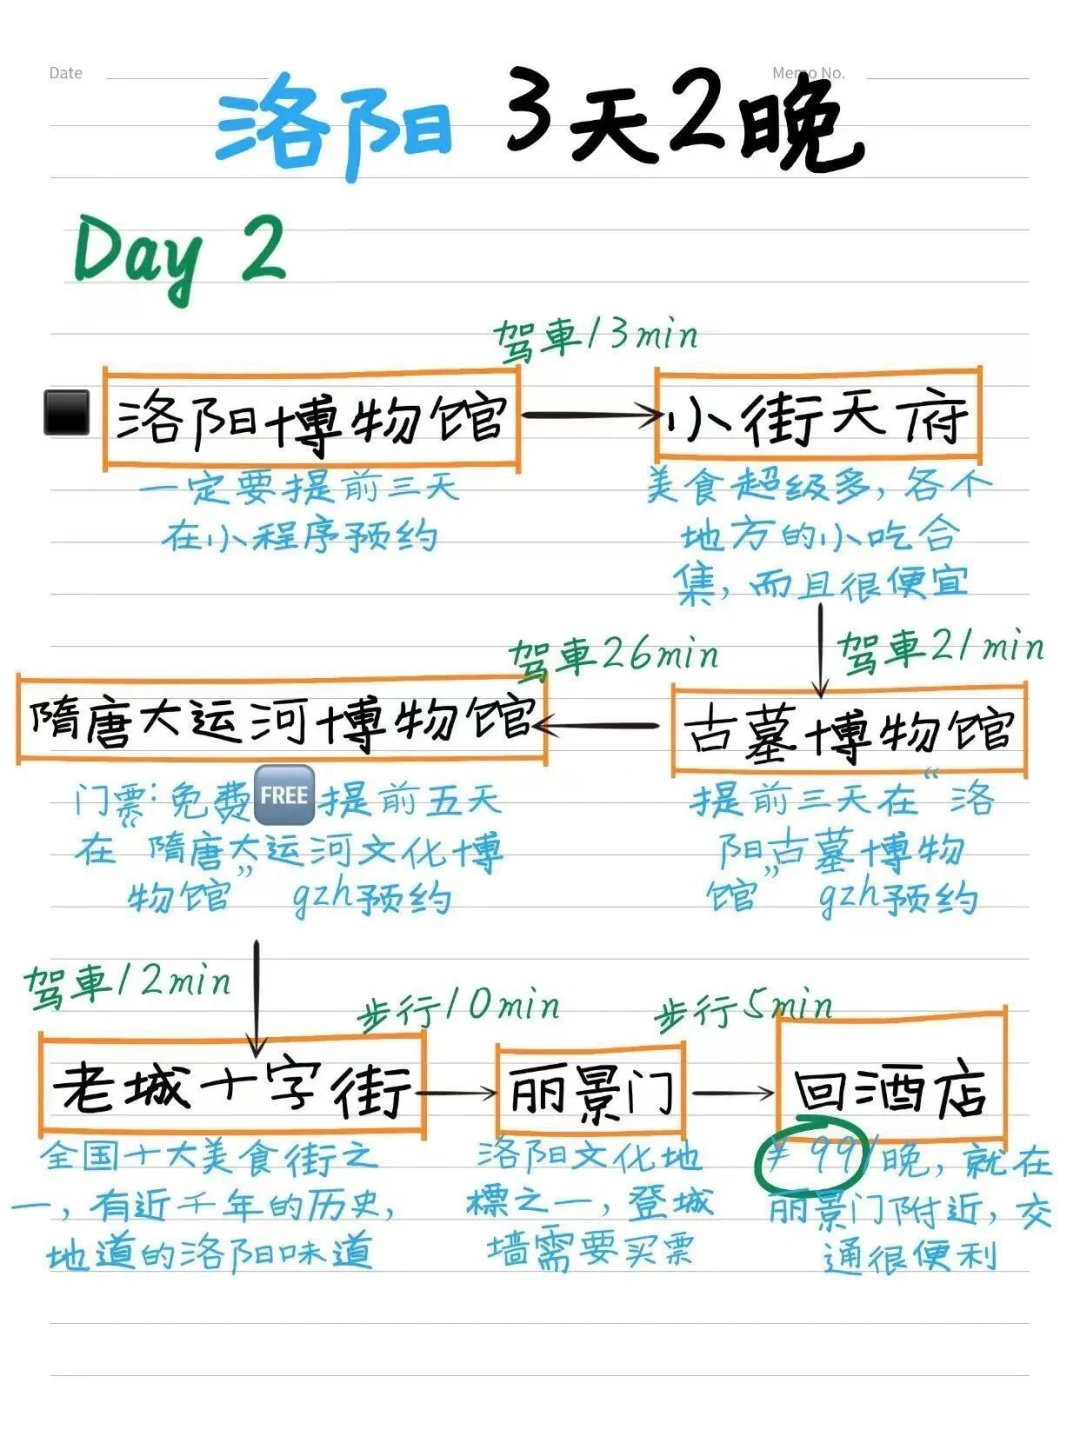 Date
Memo No.
洛阳 3天2晚
Day 2
驾車13min
洛阳博物馆
小街天府
一定要提前三天
在小程序预约
美食超级多,各个
地方的小吃合
集,而且很便宜
驾車26min
驾車21min
隋唐大运河博物馆
古墓博物馆
门票:免费 FREE 提前五天
在“隋唐大运河文化博
物馆” gzh预约
提前三天在“洛
阳古墓博物
馆” gzh预约
驾車12min
步行10min
步行5min
老城十字街
丽景门
回酒店
全国十大美食街之
一,有近千年的历史,
地道的洛阳味道
洛阳文化地
標之一,登城
墙需要买票
¥99/晚,就在
丽景门附近,交
通很便利